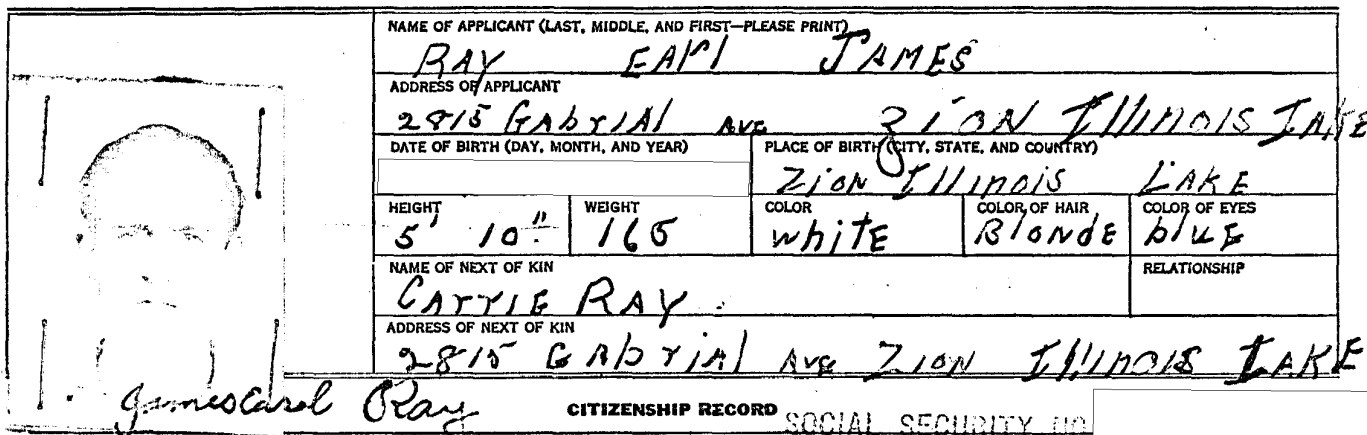 NAME OF APPLICANT (LAST, MIDDLE, AND FIRST—PLEASE PRINT)
RAY EARl JAMES
ADDRESS OF APPLICANT
2815 GAbriAl AVE ZiON IllinOIS LAKE
DATE OF BIRTH (DAY, MONTH, AND YEAR) PLACE OF BIRTH (CITY, STATE, AND COUNTRY)
ZiON IllinOiS LAKE
HEIGHT WEIGHT COLOR COLOR OF HAIR COLOR OF EYES
5' 10" 165 whitE BlONDE bluE
NAME OF NEXT OF KIN RELATIONSHIP
CArriE RAY
ADDRESS OF NEXT OF KIN
2815 GAbriAl AvE ZiON IllinOIS LAKE
James Earl Ray CITIZENSHIP RECORD SOCIAL SECURITY NO